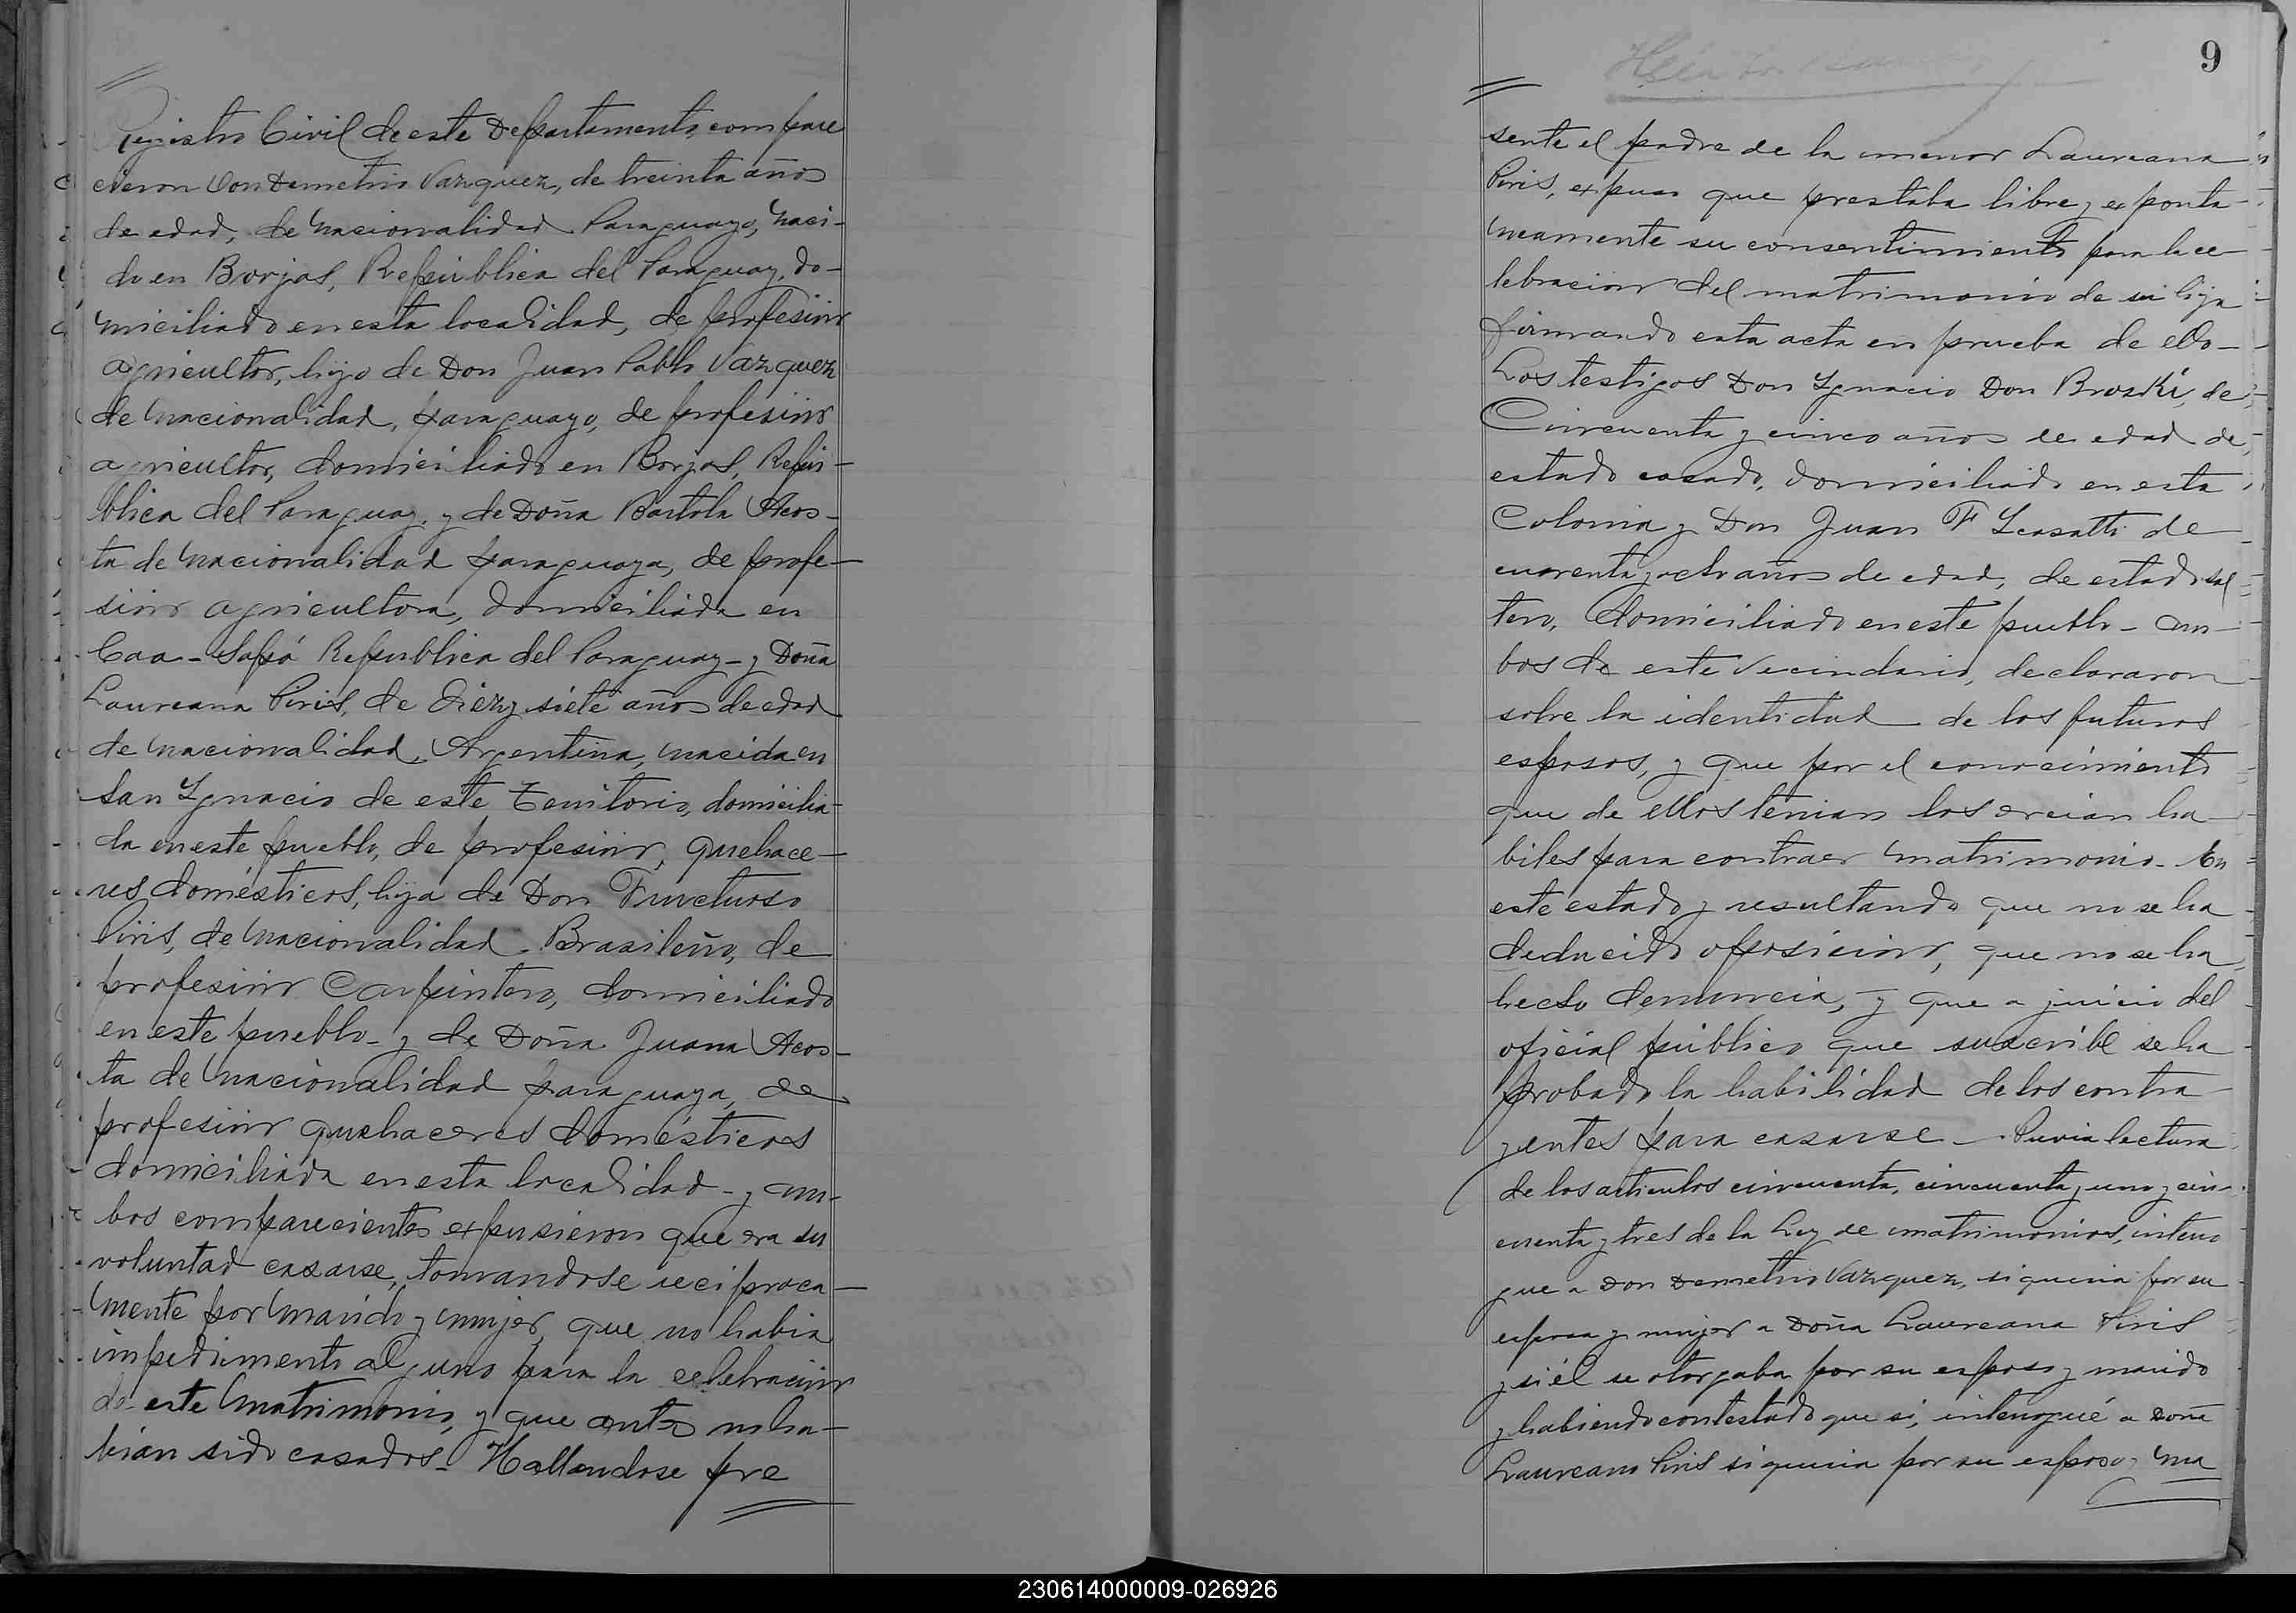 Registro Civil de este Departamento, compare
cieron Don Demetrio Vazquez, de treinta años
de edad, de nacionalidad Paraguayo, naci-
do en Borjas, República del Paraguay, do-
miciliado en esta localidad, de profesion
agricultor, hijo de Don Juan Pablo Vazquez
de nacionalidad, paraguayo, de profesion
agricultor, domiciliado en Borjas, Repú-
blica del Paraguay, y de Doña Bartola Acos-
ta de nacionalidad paraguaya, de profe-
sion agricultora, domiciliada en
Caa-Sapá Republica del Paraguay - y Doña
Laureana Piris, de diez y siete años de edad
de nacionalidad, Argentina, nacida en
San Ygnacio de este Territorio, domicilia-
da en este pueblo, de profesion, quehace-
res domésticos, hija de Don Fructuoso
Piris, de nacionalidad Brasileño, de
profesion Carpintero, domiciliado
en este pueblo - y de Doña Juana Acos-
ta de nacionalidad paraguaya, de
profesion quehaceres domésticos
domiciliada en esta localidad - y am-
bos comparecientes expusieron que era su
voluntad casarse, tomandose reciproca-
mente por marido y mujer, que no habia
impedimento alguno para la celebracion
de este matrimonio, y que antes no ha-
bian sido casados - Hallandose pre
9
sente el padre de la menor Laureana
Piris, expuso que prestaba libre y exponta-
neamente su consentimiento para la ce-
lebracion del matrimonio de su hija
firmando esta acta en prueba de ello -
Los testigos Don Ygnacio Don Broski, de
Cincuenta y cinco años de edad de
estado casado, domiciliado en esta
Colonia y Don Juan F de
cuarenta y ocho años de edad, de estado sol
tero, domiciliado en este pueblo - am-
bos de este vecindario, declararon
sobre la identidad de los futuros
esposos, y que por el conocimiento
que de ellos tenian los creian ha-
biles para contraer matrimonio - En
este estado y resultando que no se ha
deducido oposicion, que no se ha
hecho denuncia, y que a juicio del
oficial público que suscribe se ha
probado la habilidad de los contra
yentes para casarse - Previa lectura
de los articulos cincuenta, cincuenta y uno y cin-
cuenta y tres de la Ley de matrimonios, interro
gue a Don Demetrio Vazquez, si queria por su
esposa y mujer a Doña Laureana Piris
y si él se otorgaba por su esposo y marido
y habiendo contestado que si, interrogué a Doña
Laureana Piris si queria por su esposo y ma
230614000009-026926